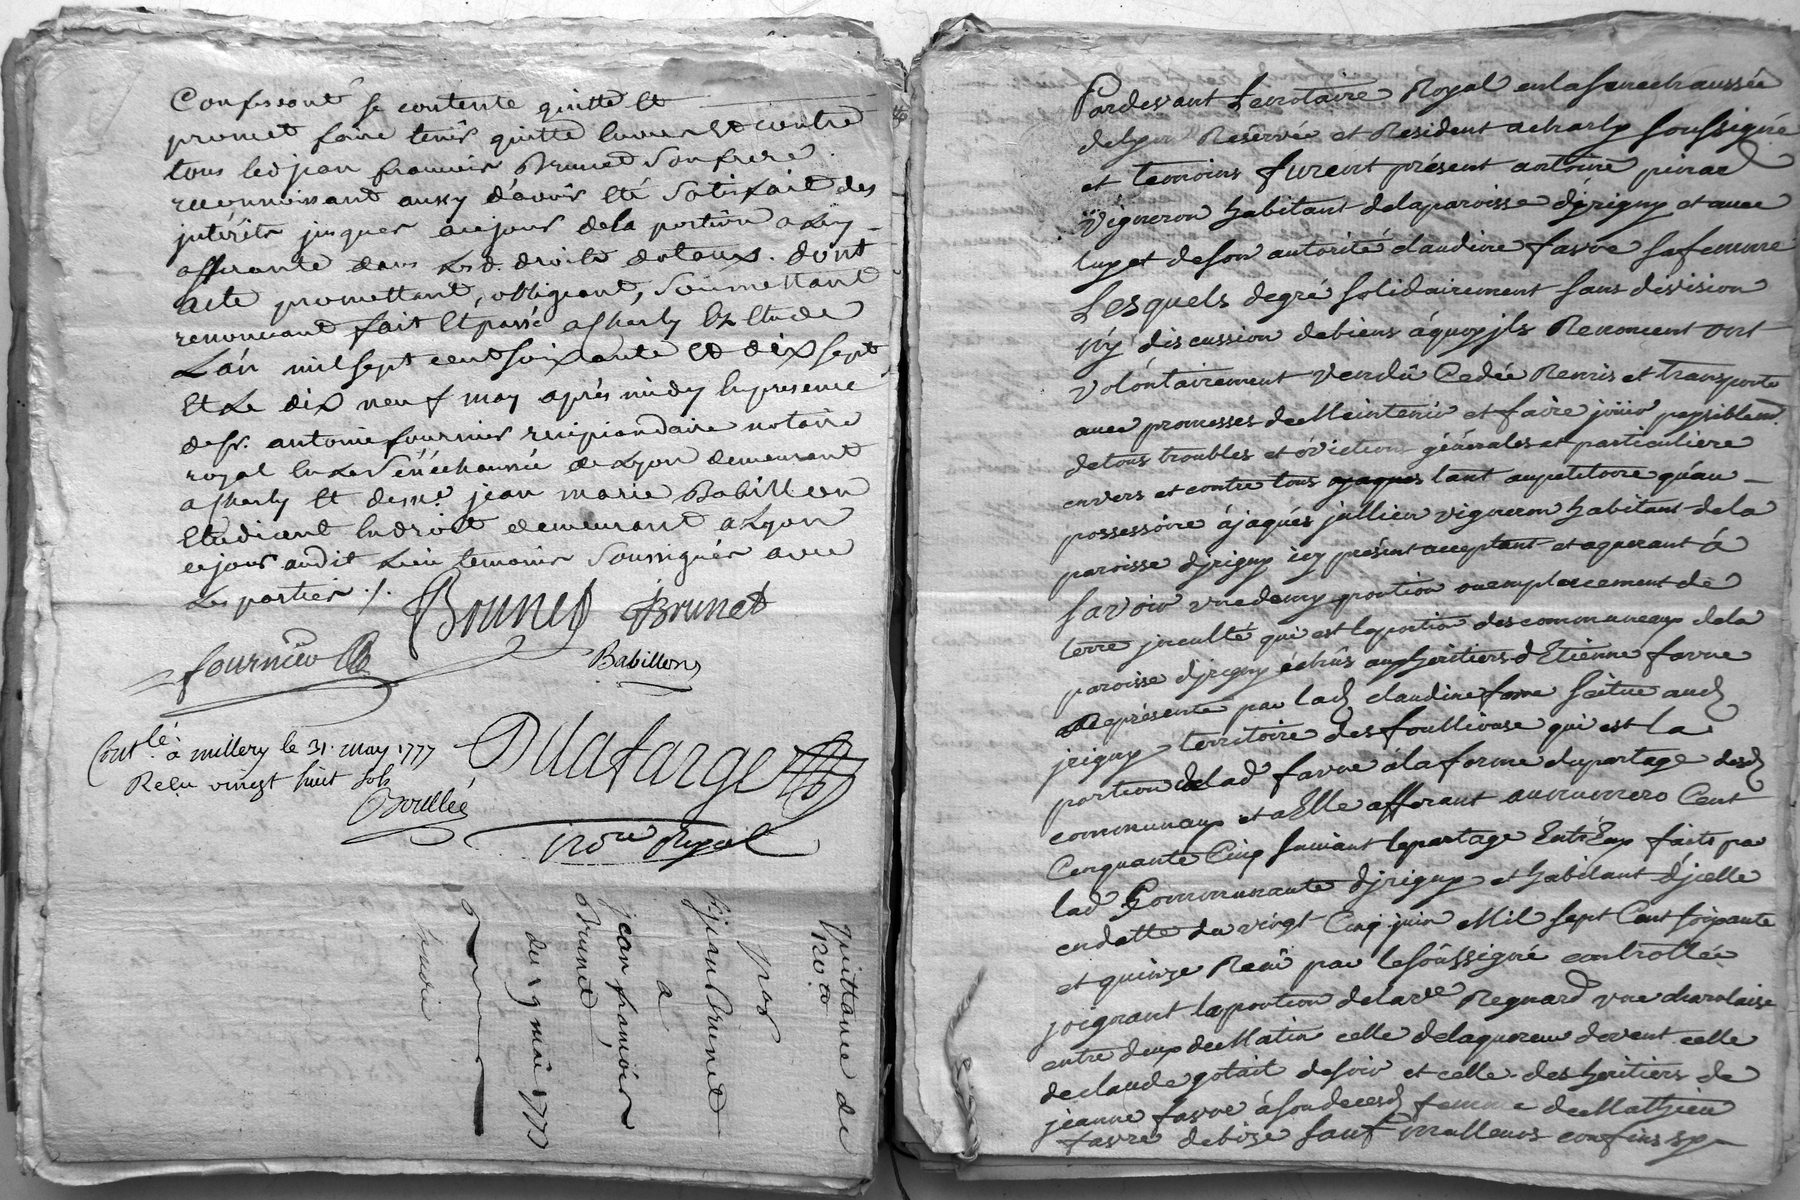 Confessant se contente quitte et
promet faire tenir quitte envers et contre
tous led jean francois Brunet son frere
reconnoissant aussy d'avoir eté satisfait des
jntérêts jusques aujour de la portion a luy
afferante dans lesd. droits dotaux. dont
acte promettant, obligeant, soumettant
renonçant fait et passé a Charly en etude
L'an mil sept cent soixante et dix sept
et le dix neuf may après midy en presence
de sr. antoine fournier recipiandaire notaire
royal en la sénéchaussée de Lyon demeurant
a Charly et de me. jean marie Babillon
etudiant en droit demeurant a Lyon
cejour audit lieu temoins soussignés avec
les parties ./.
Brunet Brunet
fournier
Babillon
Contlé. à millery le 31. may 1777
Reçu vingt huit sols
Boullée
Delafarge
nore Royal
quittance de
120 #
par
sr jean Brunet
a
jean francois
Brunet
du 19 mai 1777
Pardevant Le notaire Royal en la senechaussée
de lyon Reservée et Resident a charly soussigné
et temoins furent présent antoine pinard
vigneron habitant de la paroisse d'jrigny et avec
luy et de son autorité claudine favre sa femme
Lesquels de gré solidairement sans division
ny discussion de biens à quoy jls Renoncent ont
volontairement vendû Cedée Remis et transporte
avec promesses de Meintenir et faire joüir paysiblemt.
de tous troubles et évictions générales et particuliere
envers et contre tous tant au petitoire qu'au
possessoire à jaques jullien vigneron habitant de la
paroisse djrigny icy présent acceptant et aquerant à
savoir une demy portion ou emplacement de
terre jnculte qui est la portion des communeaux de la
paroisse djrigny échûs aux héritiers d'Etienne favre
Représente par lad. claudine favre située aud.
jrigny territoire des foullieuse qui est la
portion de lad favre à la forme du partage desd.
communaux et a Elle afferant au numero Cent
Cinquante Cinq suivant le partage Entr'Eux faits par
lad. Communaute djrigny et habitant d'jcelle
en datte du vingt Cinq juin Mil sept Cent soixante
et quinze Reçû par le soussigné controllée
joignant la portion de la ve. Regnard une charolaise
entre deux de Matin celle de laquereur devent celle
de claude gotail de soir et celle des heritiers de
jeanne favre à son deces femme de Mathieu
favre de bize sauf meilleurs confins sy